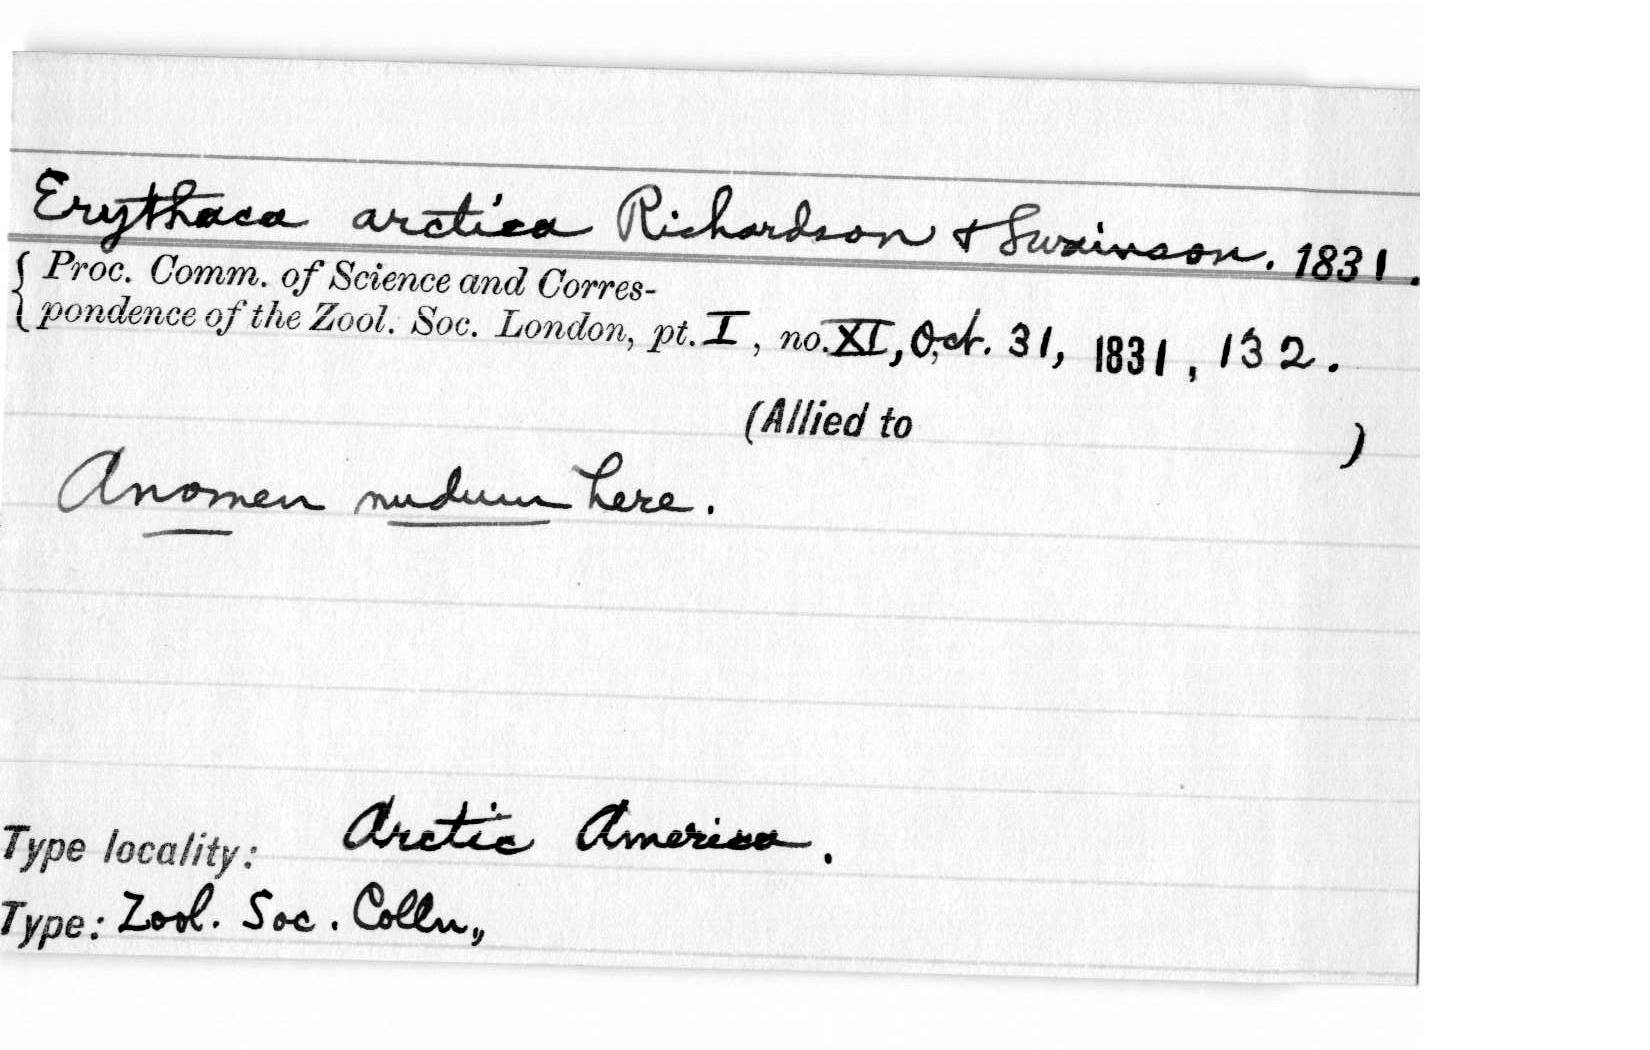 Erythaca arctica Richardson & Swainson. 1831.
{ Proc. Comm. of Science and Corres-
pondence of the Zool. Soc. London, pt. I, no. XI, Oct. 31, 1831, 132.
(Allied to )
A nomen nudum here.
Type locality: Arctic America.
Type: Zool. Soc. Colln,,